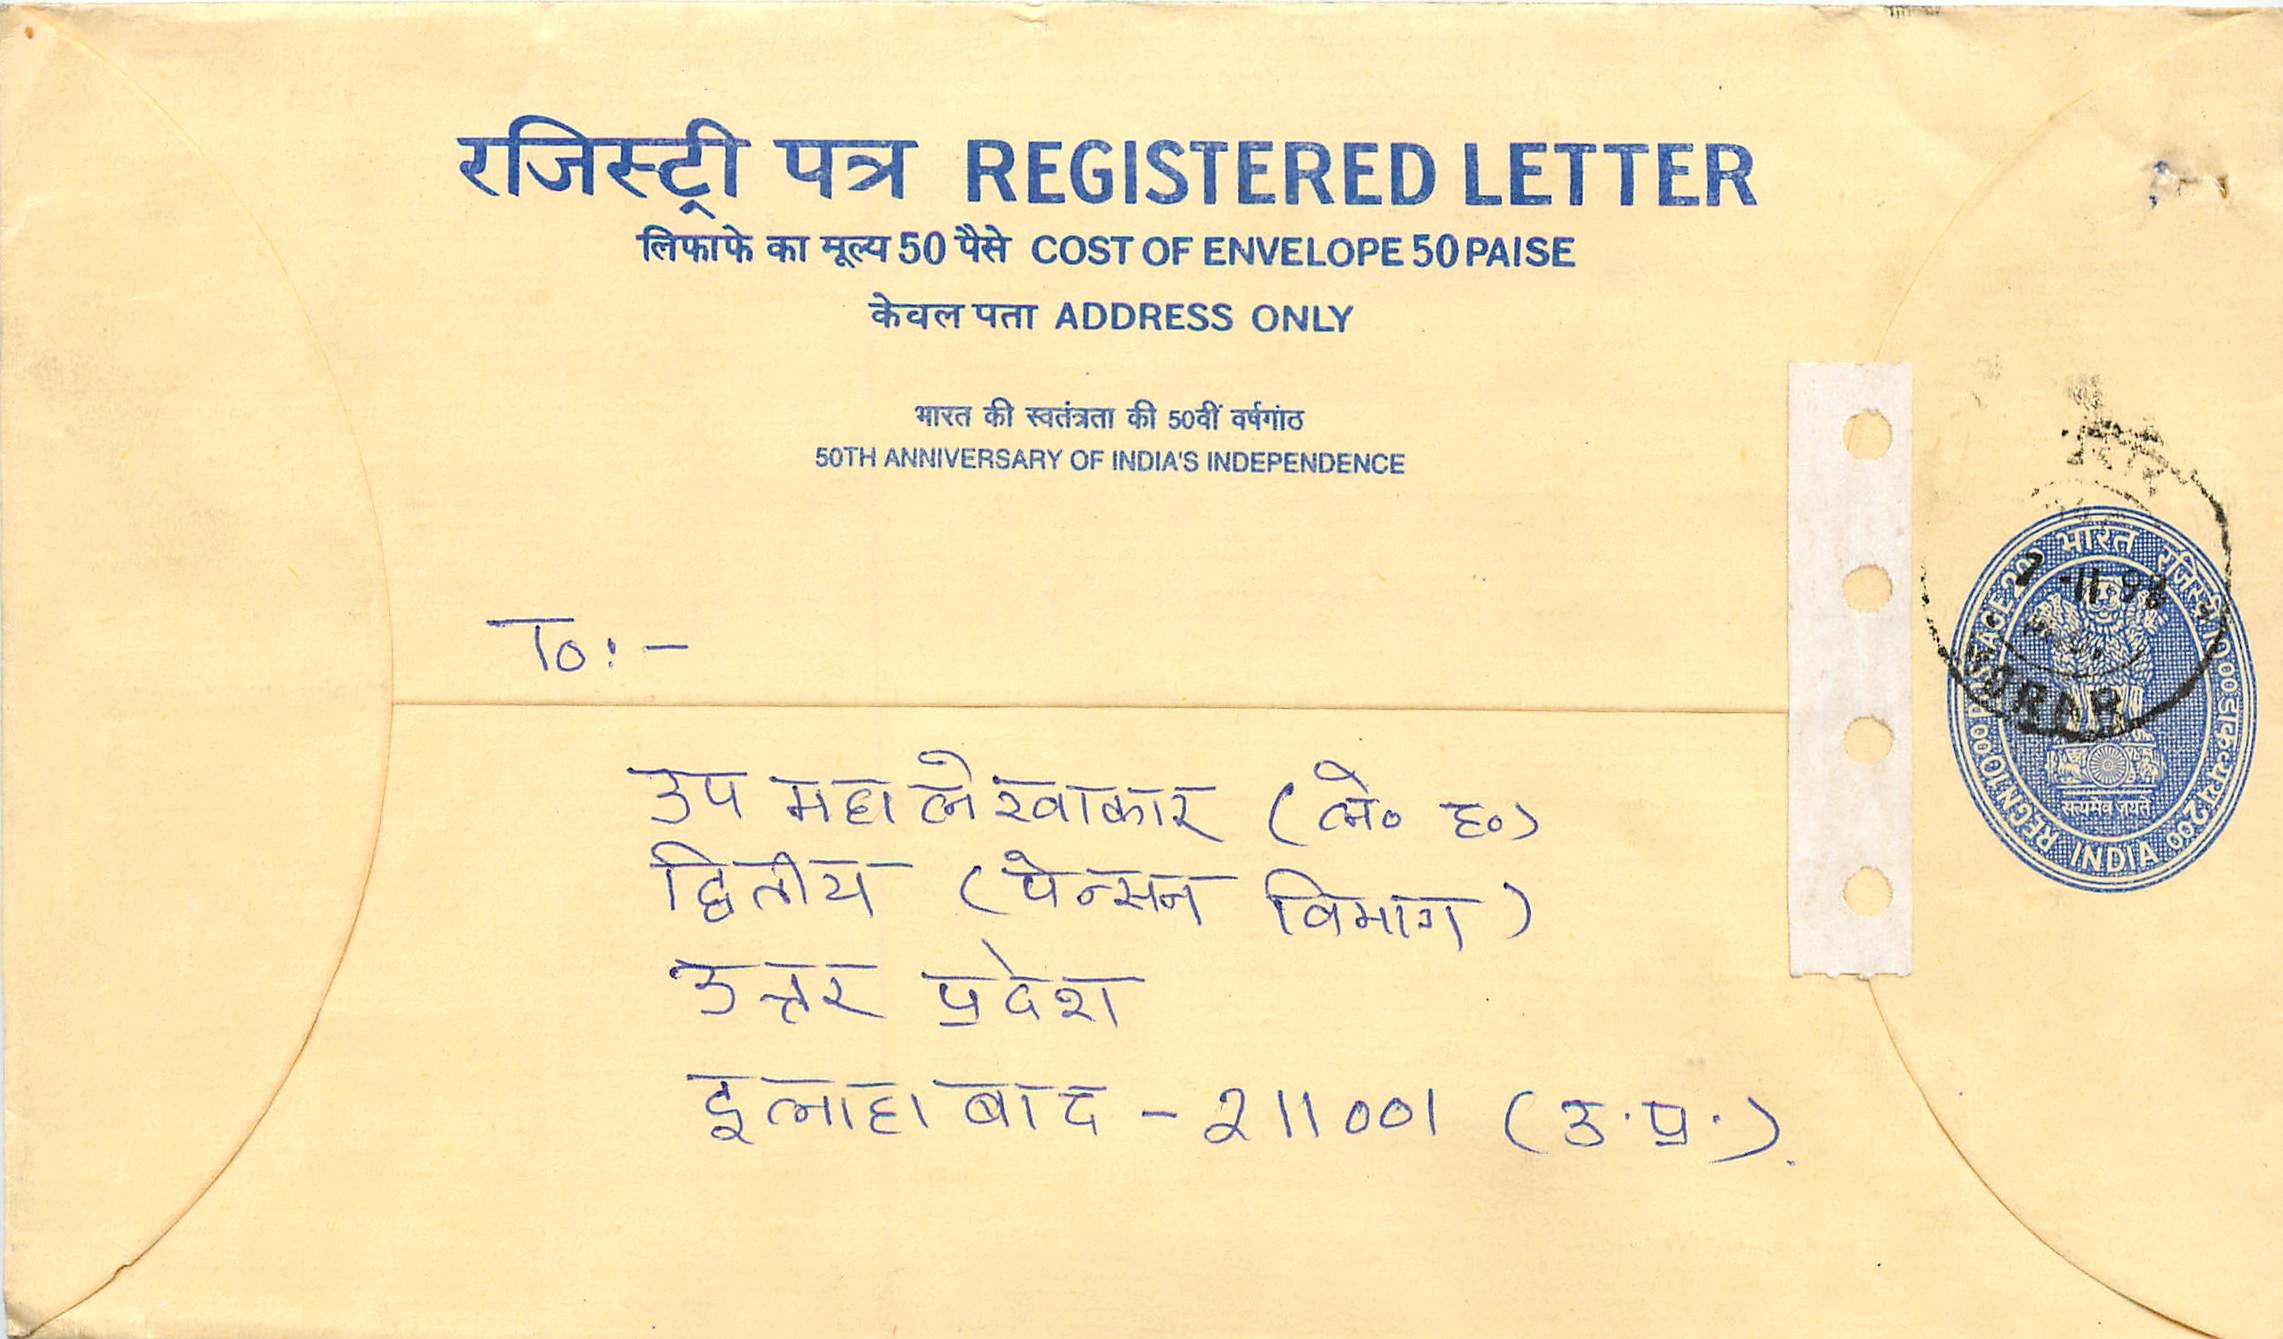 रजिस्ट्री पत्र REGISTERED LETTER
लिफाफे का मूल्य 50 पैसे COST OF ENVELOPE 50 PAISE
केवल पता ADDRESS ONLY
भारत की स्वतंत्रता की 50वीं वर्षगांठ
50TH ANNIVERSARY OF INDIA'S INDEPENDENCE
To:-
उप महालेखाकार (ले० ह०)
द्वितीय (पेन्सन विभाग)
उत्तर प्रदेश
इलाहाबाद - 211001 (उ.प्र.)
भारत रजिस्ट्री 1000 डाक-भार 200
REGN 1000 POSTAGE 200
INDIA
सत्यमेव जयते
-11-98